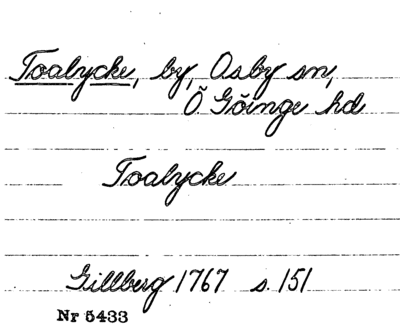 Toalycke, by, Osby sn,
Ö. Göinge hd
Toalycke
Gillberg 1767 s. 151
Nr 5433